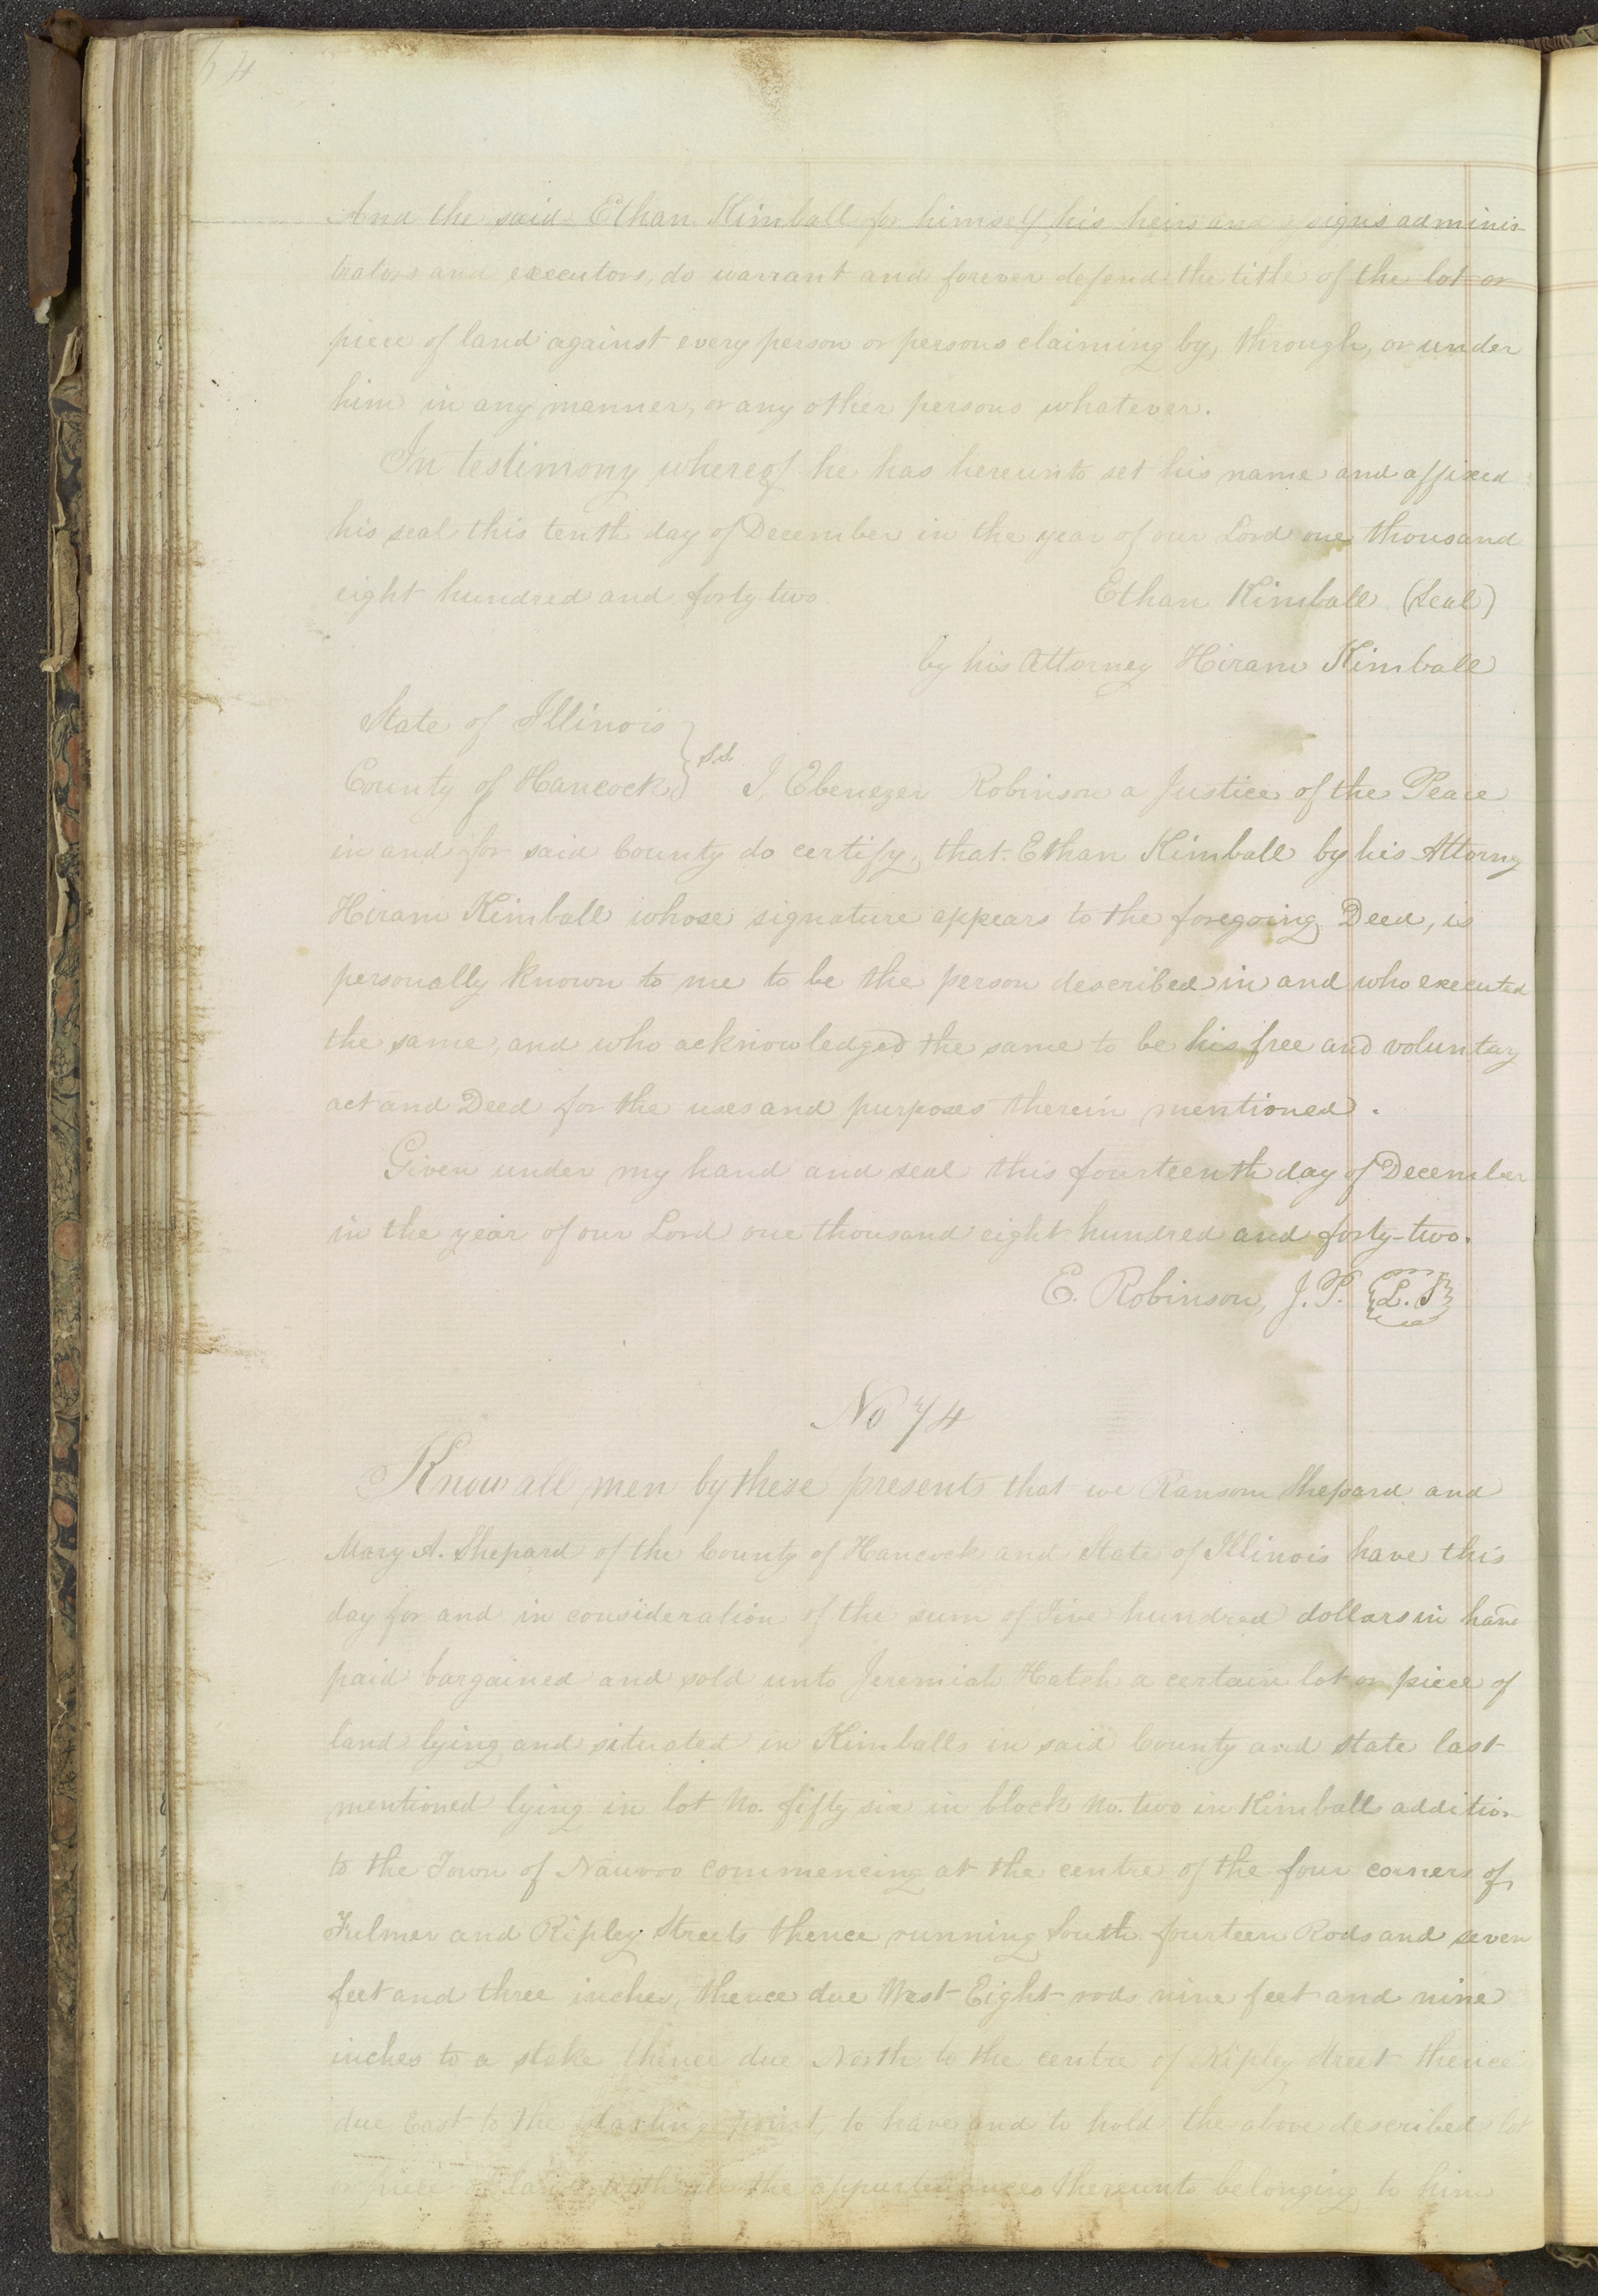 64
And the said Ethan Kimball for himself his heirs and assigns adminis-
trators and executors, do warrant and forever defend the title of the lot or
piece of land against every person or persons claiming by, through, or under
him in any manner, or any other persons whatever.
In testimony whereof he has hereunto set his name and affixed
his seal this tenth day of December in the year of our Lord one thousand
eight hundred and forty two Ethan Kimball (Seal)
by his Attorney Hiram Kimball
State of Illinois
County of Hancock } s.s. I, Ebenezer Robinson a Justice of the Peace
in and for said County do certify, that Ethan Kimball by his Attorny
Hiram Kimball whose signature appears to the foregoing Deed, is
personally known to me to be the person described in and who executed
the same, and who acknowledged the same to be his free and voluntary
act and Deed for the uses and purposes therein mentioned.
Given under my hand and seal this fourteenth day of December
in the year of our Lord one thousand eight hundred and forty-two.
E. Robinson, J.P. L.S
No 74
Know all men by these presents that we Ransom Shepard and
Mary A. Shepard of the County of Hancock and State of Illinois have this
day for and in consideration of the sum of Five hundred dollars in hand
paid bargained and sold unto Jeremiah Hatch a certain lot or piece of
land lying and situated in Kimballs in said County and state last
mentioned lying in lot No. fifty six in block No. two in Kimballs addition
to the Town of Nauvoo commencing at the centre of the four corners of
Fulmer and Ripley Streets thence running South fourteen Rods and seven
feet and three inches, thence due West Eight rods nine feet and nine
inches to a stake thence due North to the centre of Ripley Street thence
due East to the starting point, to have and to hold the above described lot
or piece of land with all the appurtenances thereunto belonging to him